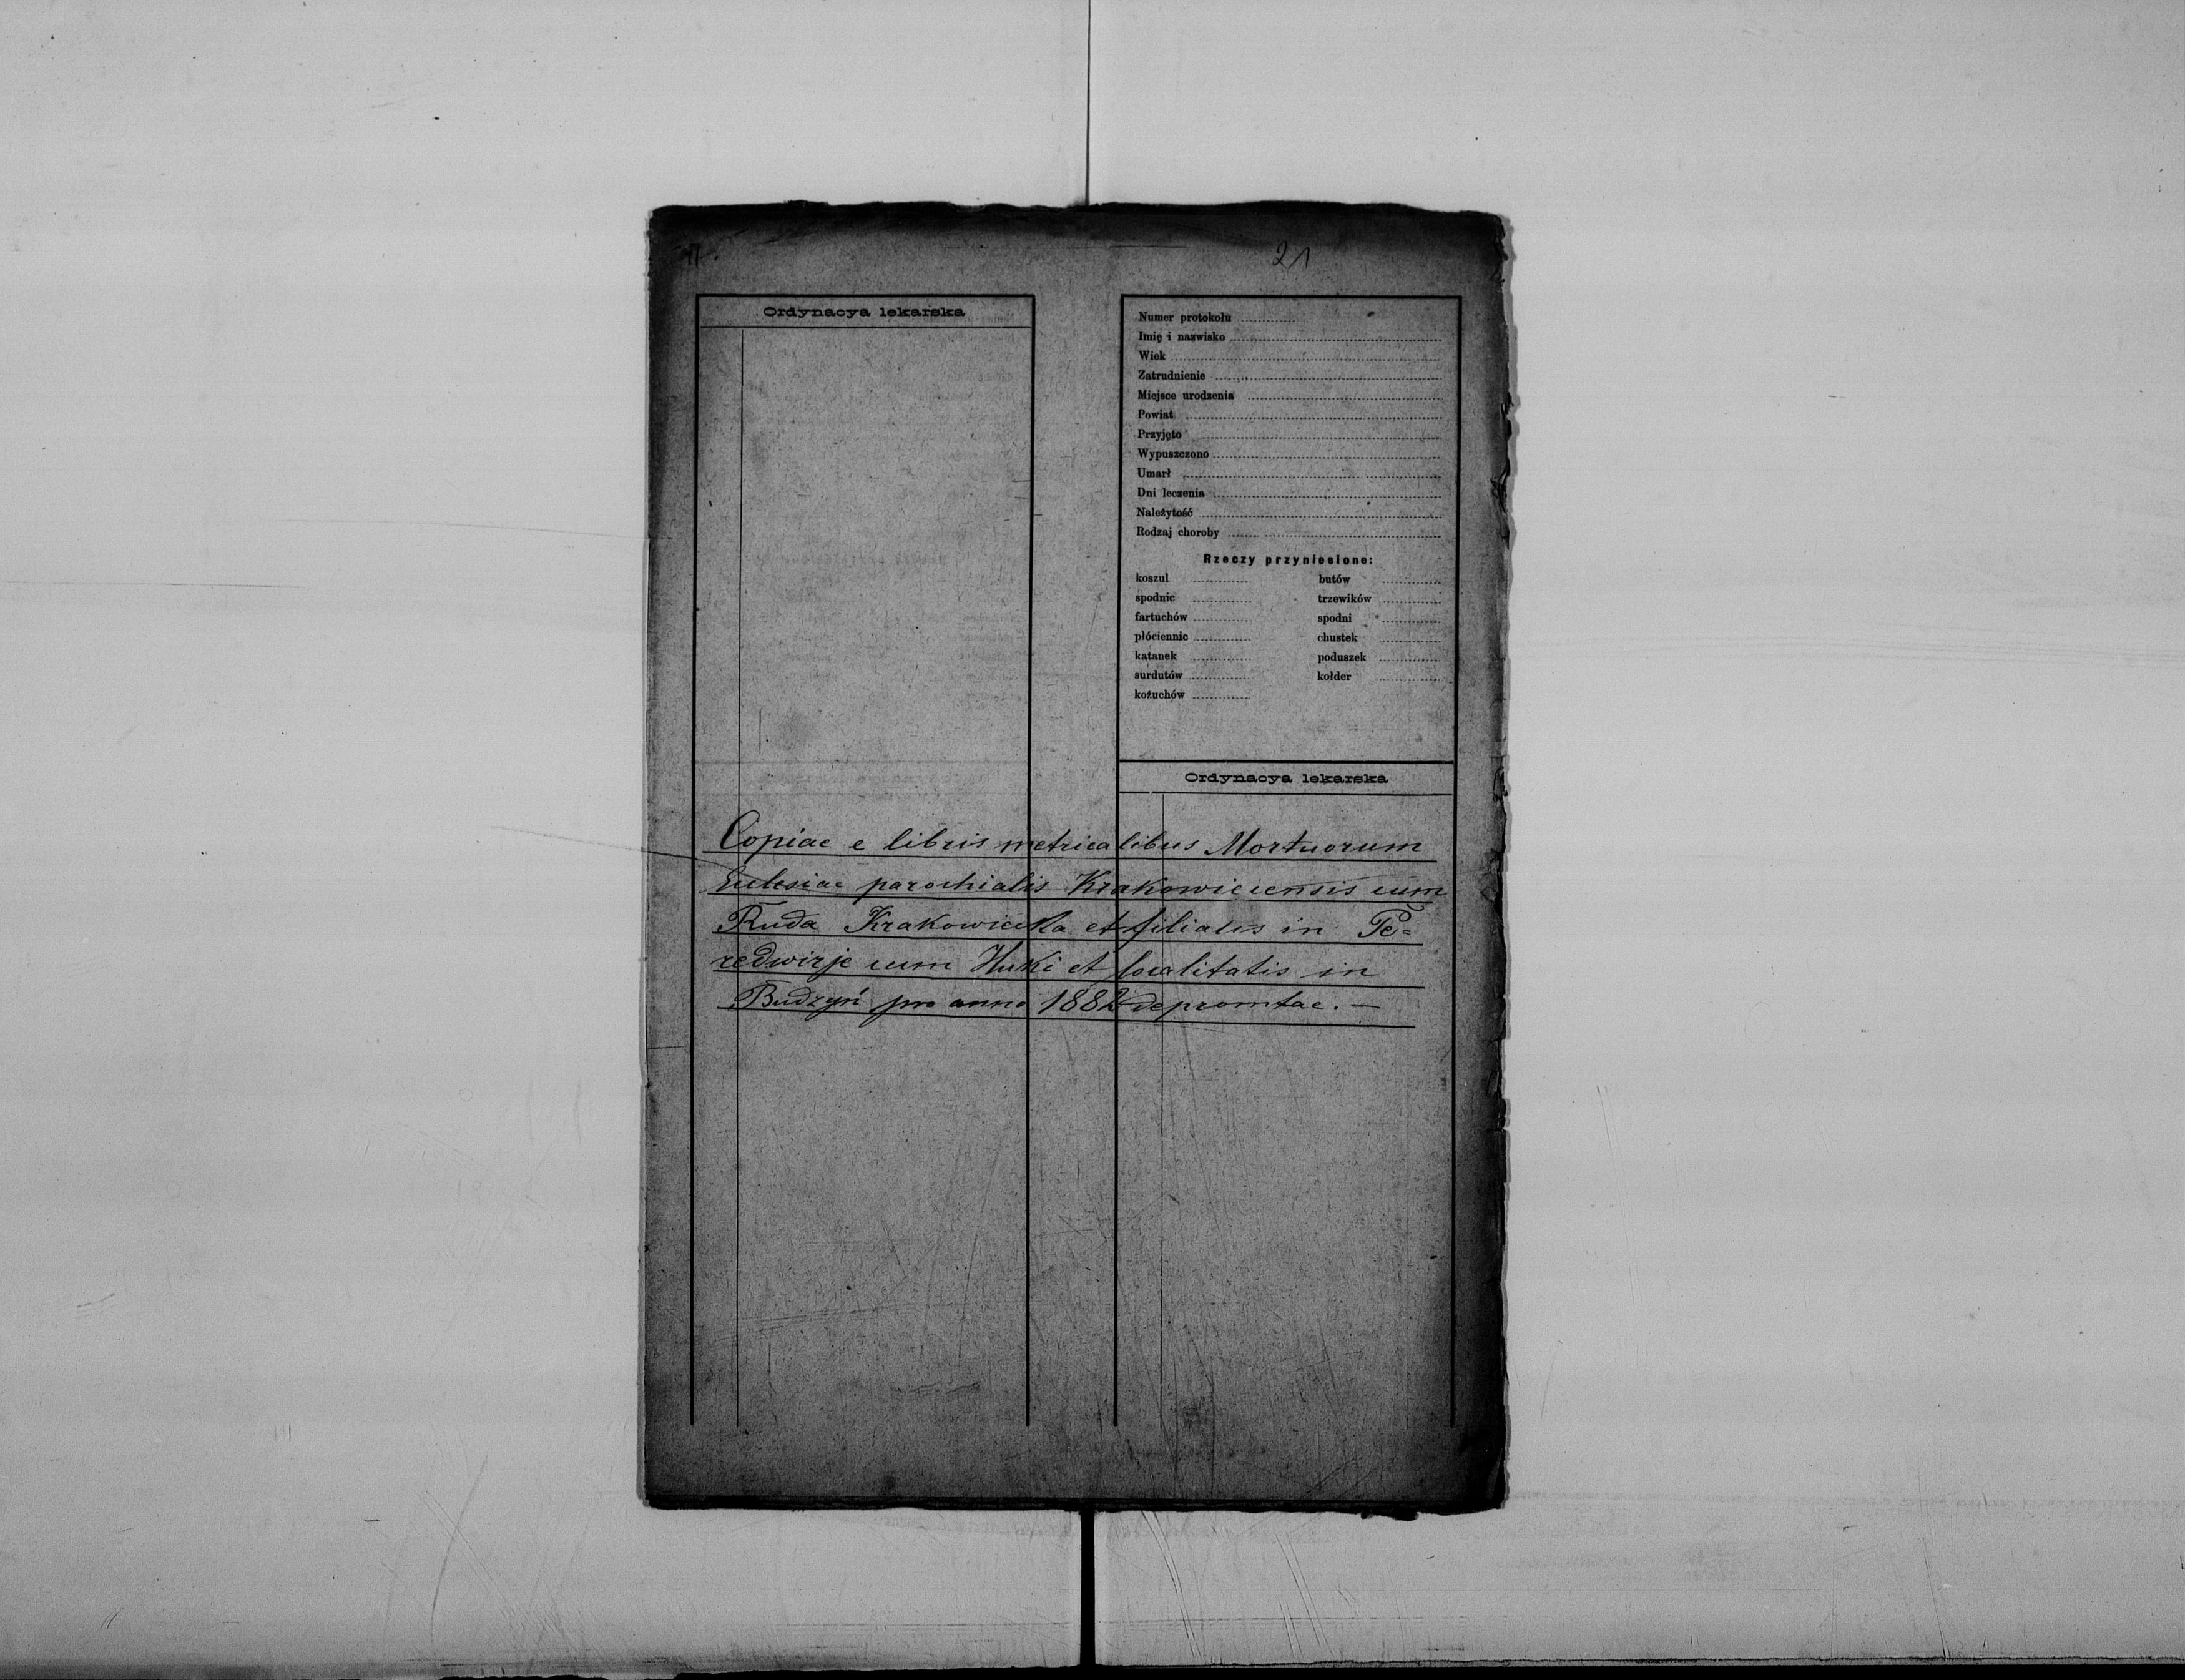 21
Ordynacya lekarska
Numer protokołu
Imię i nazwisko
Wiek
Zatrudnienie
Miejsce urodzenia
Powiat
Przyjęto
Wypuszczono
Umarł
Dni leczenia
Należytość
Rodzaj choroby
Rzeczy przyniesione:
koszul butów
spodnic trzewików
fartuchów spodni
płóciennic chustek
katanek poduszek
surdutów kołder
kożuchów
Ordynacya lekarska
Copiae e libris metricalibus Mortuorum
Eclesiae parochialis Krakowiecensis cum
Ruda Krakowiecka et filiales in Pe=
redwirje cum Huki et localitatis in
Budzyń pro anno 1882 depromtae. —